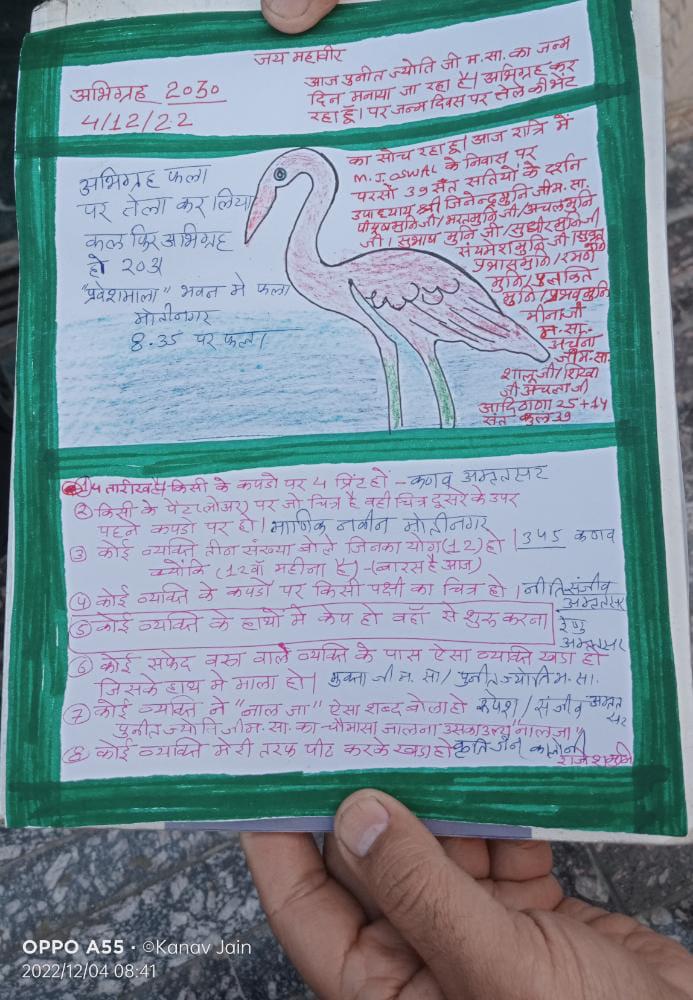 जय महावीर
अभिग्रह 2030
4/12/22
आज पुनीत ज्योति जी म.सा. का जन्म
दिन मनाया जा रहा है। अभिग्रह कर
रहा हूँ। पर जन्म दिवस पर तेले की भेंट
का सोच रहा हूँ। आज रात्रि में
M.J OSWAL के निवास पर
परसों 39 संत सतियों के दर्शन
उपाध्याय श्री जितेन्द्रमुनि जी म.सा.
पीयूषमुनि जी/भरतमुनि जी/अचलमुनि
जी। सुभाष मुनि जी/सुधीरमुनि जी
संयमेशमुनि जी
प्रभासमुनि/रमन
मुनि/पुलकित
मुनि/प्रभवमुनि
मीनाजी
म.सा.
अर्चना
जी म.सा.
शालूजी/शिखा
जी अर्चनाजी
आदि ठाणा 25+14
संत कुल 39
अभिग्रह फला
पर तेला कर लिया
कल फिर अभिग्रह
हो 2031
"प्रवेशमाला" भवन मे फला
मोतीनगर
8.35 पर फला।
① 4 तारीख है किसी के कपडो पर 4 प्रिंट हों - कणव अमृतसर
② किसी के पेंट (लोअर) पर जो चित्र है वही चित्र दूसरे के उपर
पहने कपडो पर हो। माणिक नवीन मोतीनगर
③ कोई व्यक्ति तीन संख्या बोले जिनका योग (12) हो। 345 कणव
क्योंकि (12वॉ महीना है) - (बारस है आज)
④ कोई व्यक्ति के कपडों पर किसी पक्षी का चित्र हो। नीति संजीव
अमृतसर
⑤ कोई व्यक्ति के हाथो मे केप हो वहाँ से शुरु करना। रेणु
अमृतसर
⑥ कोई सफेद वस्त्र वाले व्यक्ति के पास ऐसा व्यक्ति खडा हो
जिसके हाथ मे माला हो। मुक्ता जी म. सा/ पुनीत ज्योति म. सा.
⑦ कोई व्यक्ति ने "नाल जा" ऐसा शब्द बोला हो रुपेश/ संजीव अमृत
सर
पुनीत ज्योति जी म. सा. का चौमासा जालना उसका उल्टा "नालजा"
⑧ कोई व्यक्ति मेरी तरफ पीठ करके खडा हो कृति जैन कालोनी
OPPO A55 · ©Kanav Jain
2022/12/04 08:41